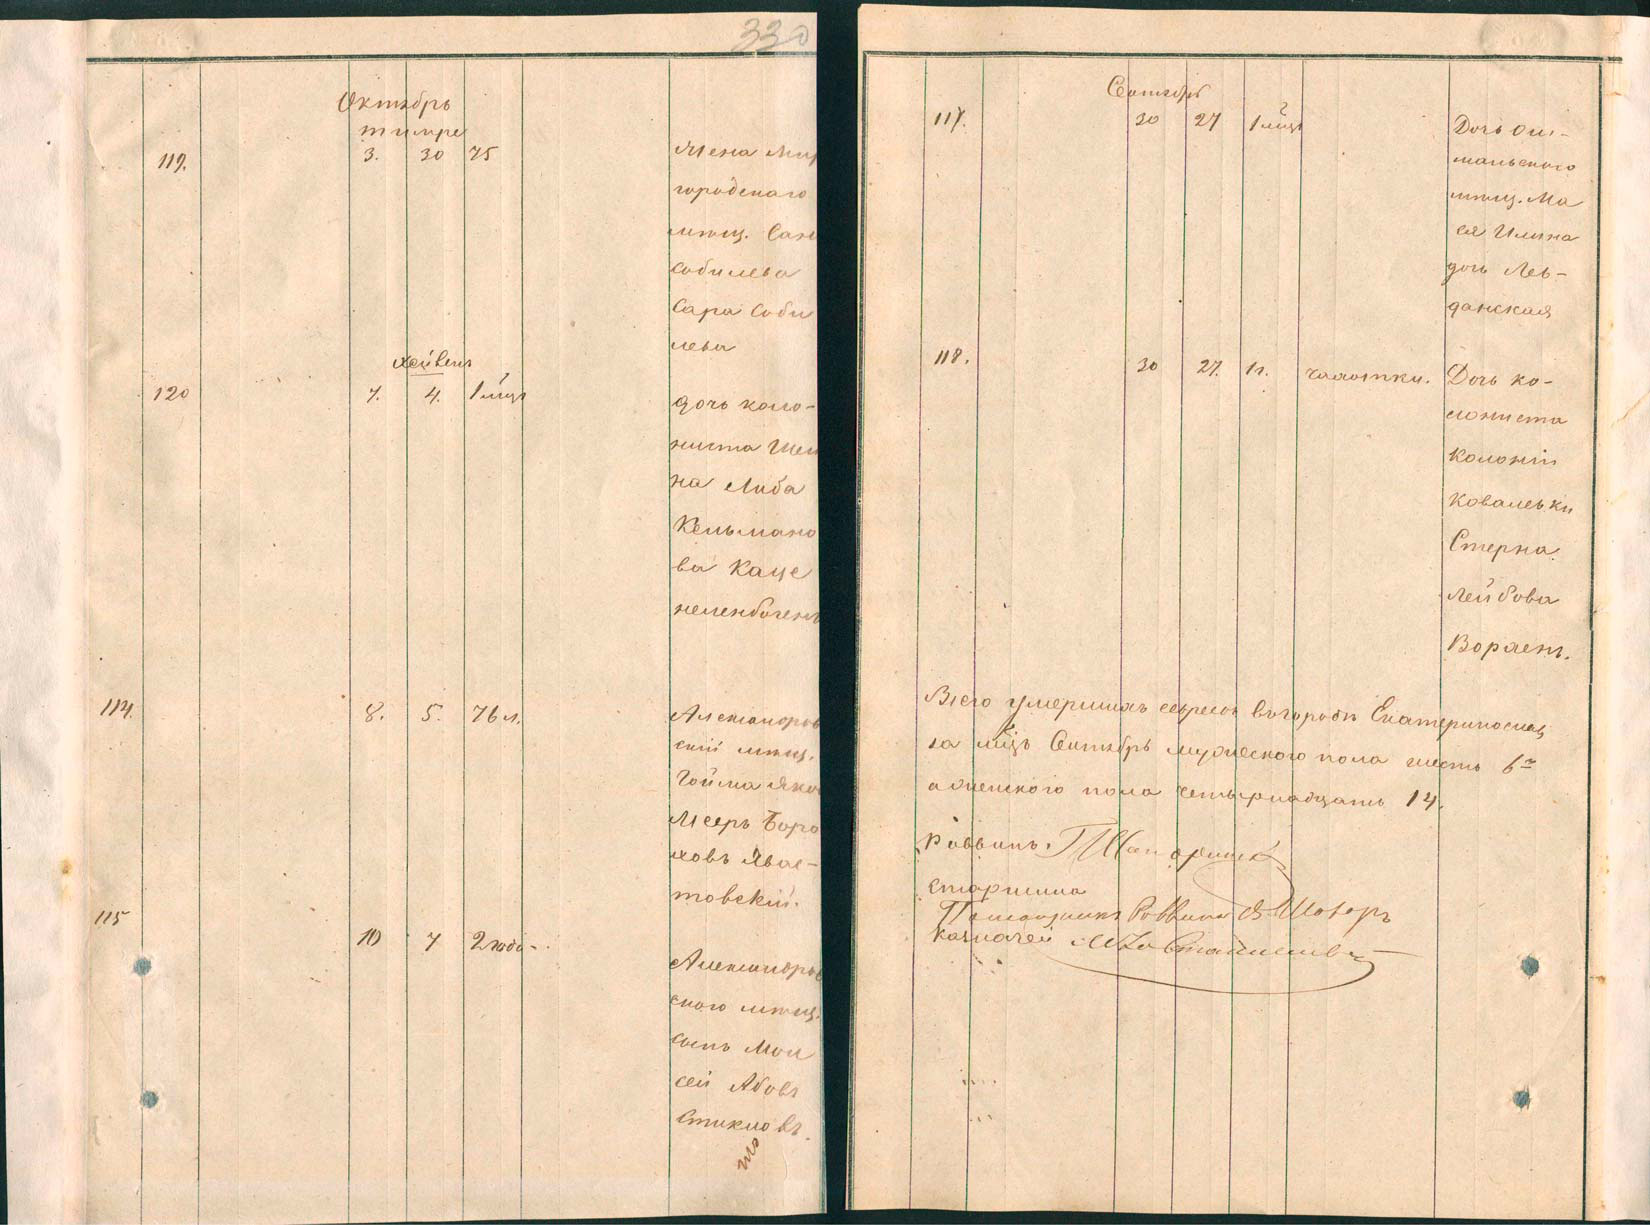 330
Октябрь
тишре
119.
3. 30 75
Жена Мир
городскаго
мѣщ. Сая
собилева
Сара Соби
лева
хейвенъ
120
7. 4. 1 мѣц
дочь коло-
ниста Шей
на Либа
Кельмано
ва Каце
неленбогенъ
114.
8. 5. 76 л.
Александров
скій мѣщ.
Яко
Мееръ Боро
ховъ Хвас-
товскій.
115
10 7 2 года
Александров
скаго мѣщ.
сынъ Мои
сей Абовъ
Стикловъ.
Сентябрь
117.
30 27 1 мѣц
Дочь Ош-
мянскаго
мѣщ. Ма
ся Илина
дочь Лев-
данская
118.
30 27. 1 г. чахотки.
Дочь ко-
лониста
колоніи
Ковалевки
Стерна
Лейбова
Ворженъ.
Всего умершихъ евреевъ въ городѣ Екатеринослав
за мѣцъ Сентябрь мужескаго пола шесть 6ть
а женского пола четырнадцать 14.
Раввинъ
Старшина
Помощникъ Раввина Шоберъ
Казначей